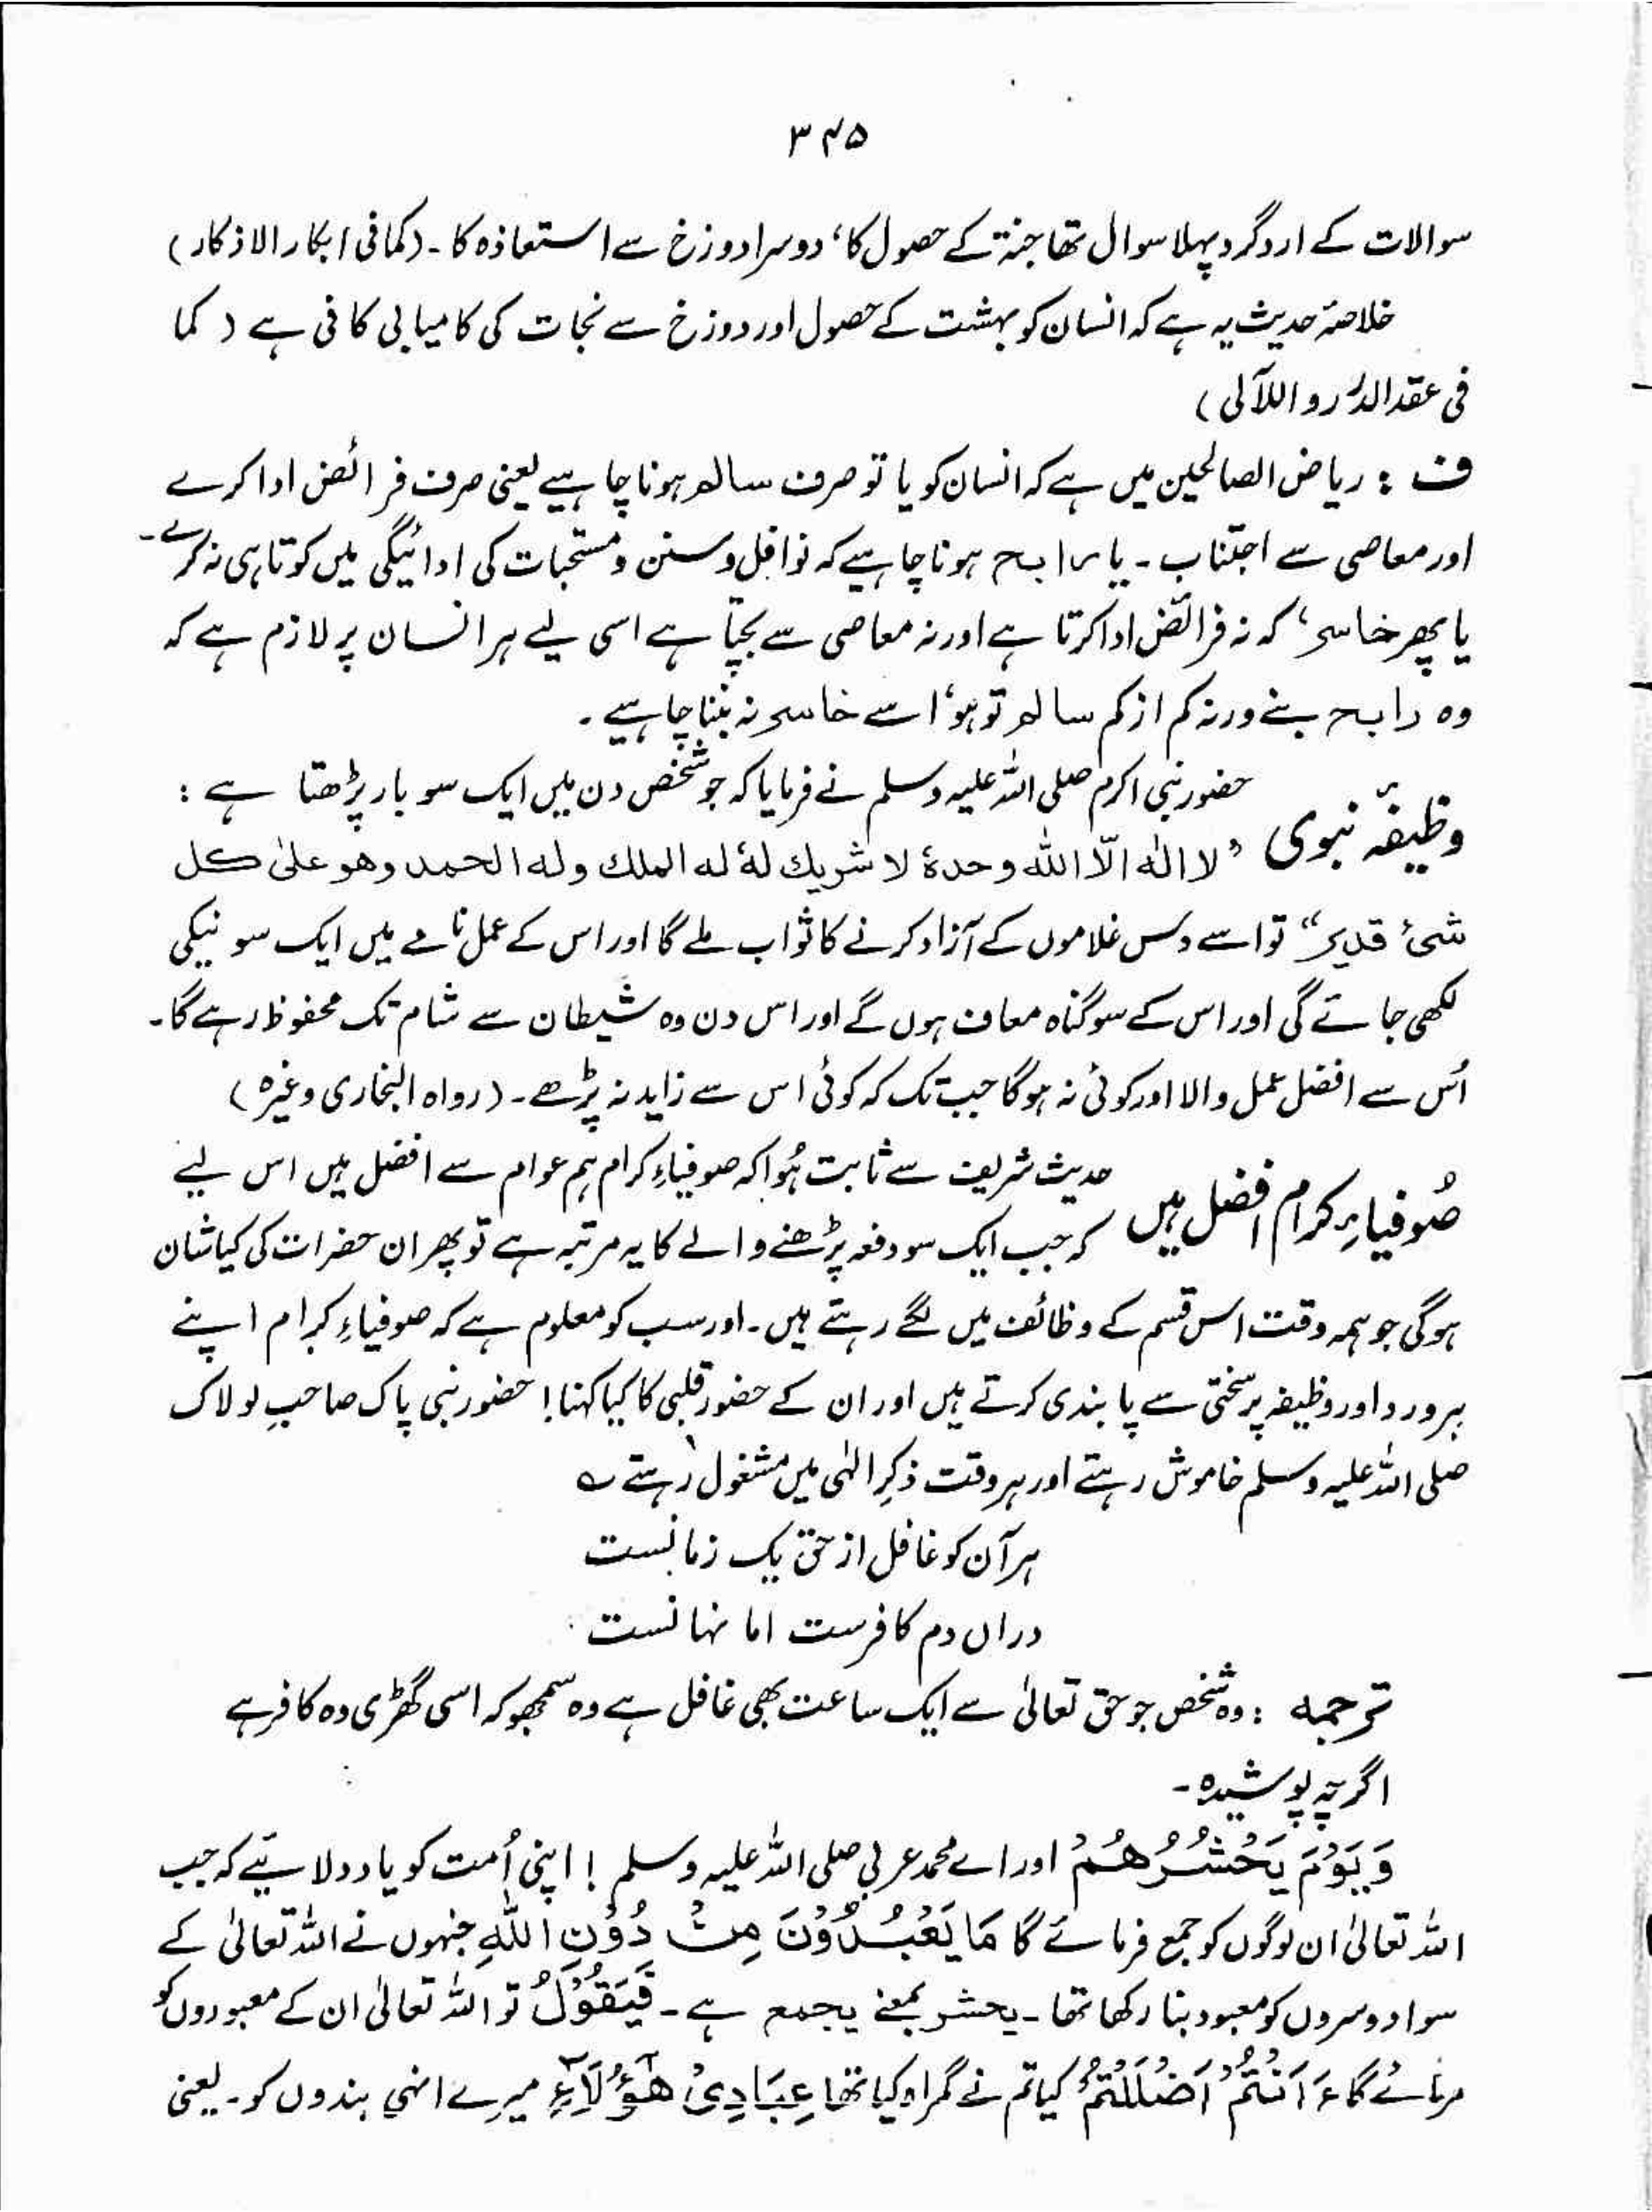 ۳۴۵
سوالات کے اردگرد پہلا سوال تھا جنۃ کے حصول کا، دوسرا دوزخ سے استعاذہ کا ۔ (کما فی ابکار الاذکار)
خلاصۂ حدیث یہ ہے کہ انسان کو بہشت کے حصول اور دوزخ سے نجات کی کامیابی کافی ہے ( کما
فی عقد الدُّرر و اللآلی )
ف : ریاض الصالحین میں ہے کہ انسان کو یا تو صرف سالم ہونا چاہیے یعنی صرف فرائض ادا کرے
اور معاصی سے اجتناب ۔ یا رابح ہونا چاہیے کہ نوافل و سنن و مستحبات کی ادائیگی میں کوتاہی نہ کرے ۔
یا پھر خاسر، کہ نہ فرائض ادا کرتا ہے اور نہ معاصی سے بچتا ہے اسی لیے ہر انسان پر لازم ہے کہ
وہ رابح بنے ورنہ کم از کم سالم تو ہو، اسے خاسر نہ بننا چاہیے ۔
وظیفۂ نبوی حضور نبی اکرم صلی اللہ علیہ وسلم نے فرمایا کہ جو شخص دن میں ایک سو بار پڑھتا ہے :
”لا الٰہ الّا اللہ وحدہٗ لا شریك لہٗ لہ الملك ولہ الحمد وھو علیٰ کل
شیٔ قدیر“ تو اسے دس غلاموں کے آزاد کرنے کا ثواب ملے گا اور اس کے عمل نامے میں ایک سو نیکی
لکھی جائے گی اور اس کے سو گناہ معاف ہوں گے اور اس دن وہ شیطان سے شام تک محفوظ رہے گا۔
اُس سے افضل عمل والا اور کوئی نہ ہوگا جب تک کہ کوئی اس سے زاید نہ پڑھے ۔ (رواہ البخاری وغیرہ)
صُوفیاءِ کرام افضل ہیں حدیث شریف سے ثابت ہُوا کہ صوفیاءِ کرام ہم عوام سے افضل ہیں اس لیے
کہ جب ایک سو دفعہ پڑھنے والے کا یہ مرتبہ ہے تو پھر ان حضرات کی کیا شان
ہوگی جو ہمہ وقت اس قسم کے وظائف میں لگے رہتے ہیں ۔ اور سب کو معلوم ہے کہ صوفیاءِ کرام اپنے
ہر ورد اور وظیفہ پر سختی سے پابندی کرتے ہیں اور ان کے حضور قلبی کا کیا کہنا! حضور نبی پاک صاحبِ لولاک
صلی اللہ علیہ وسلم خاموش رہتے اور ہر وقت ذکرِ الٰہی میں مشغول رہتے ؎
ہر آن کو غافل از حق یک زمانست
دراں دم کافرست اما نہانست
ترجمہ : وہ شخص جو حق تعالیٰ سے ایک ساعت بھی غافل ہے وہ سمجھو کہ اسی گھڑی وہ کافر ہے
اگرچہ پوشیدہ ۔
وَ یَوْمَ یَحْشُرُھُمْ اور اے محمد عربی صلی اللہ علیہ وسلم ! اپنی اُمت کو یاد دلائیے کہ جب
اللہ تعالیٰ ان لوگوں کو جمع فرمائے گا مَا یَعْبُدُوْنَ مِنْ دُوْنِ اللّٰہِ جنہوں نے اللہ تعالیٰ کے
سوا دوسروں کو معبود بنا رکھا تھا ۔ یحشر بمعنے یجمع ہے ۔ فَیَقُوْلُ تو اللہ تعالیٰ ان کے معبودوں کو
فرمائے گا ءَ اَنْتُمْ اَضْلَلْتُمْ کیا تم نے گمراہ کیا تھا عِبَادِیْ ھٰٓؤُلَآءِ میرے انہی بندوں کو ۔ یعنی